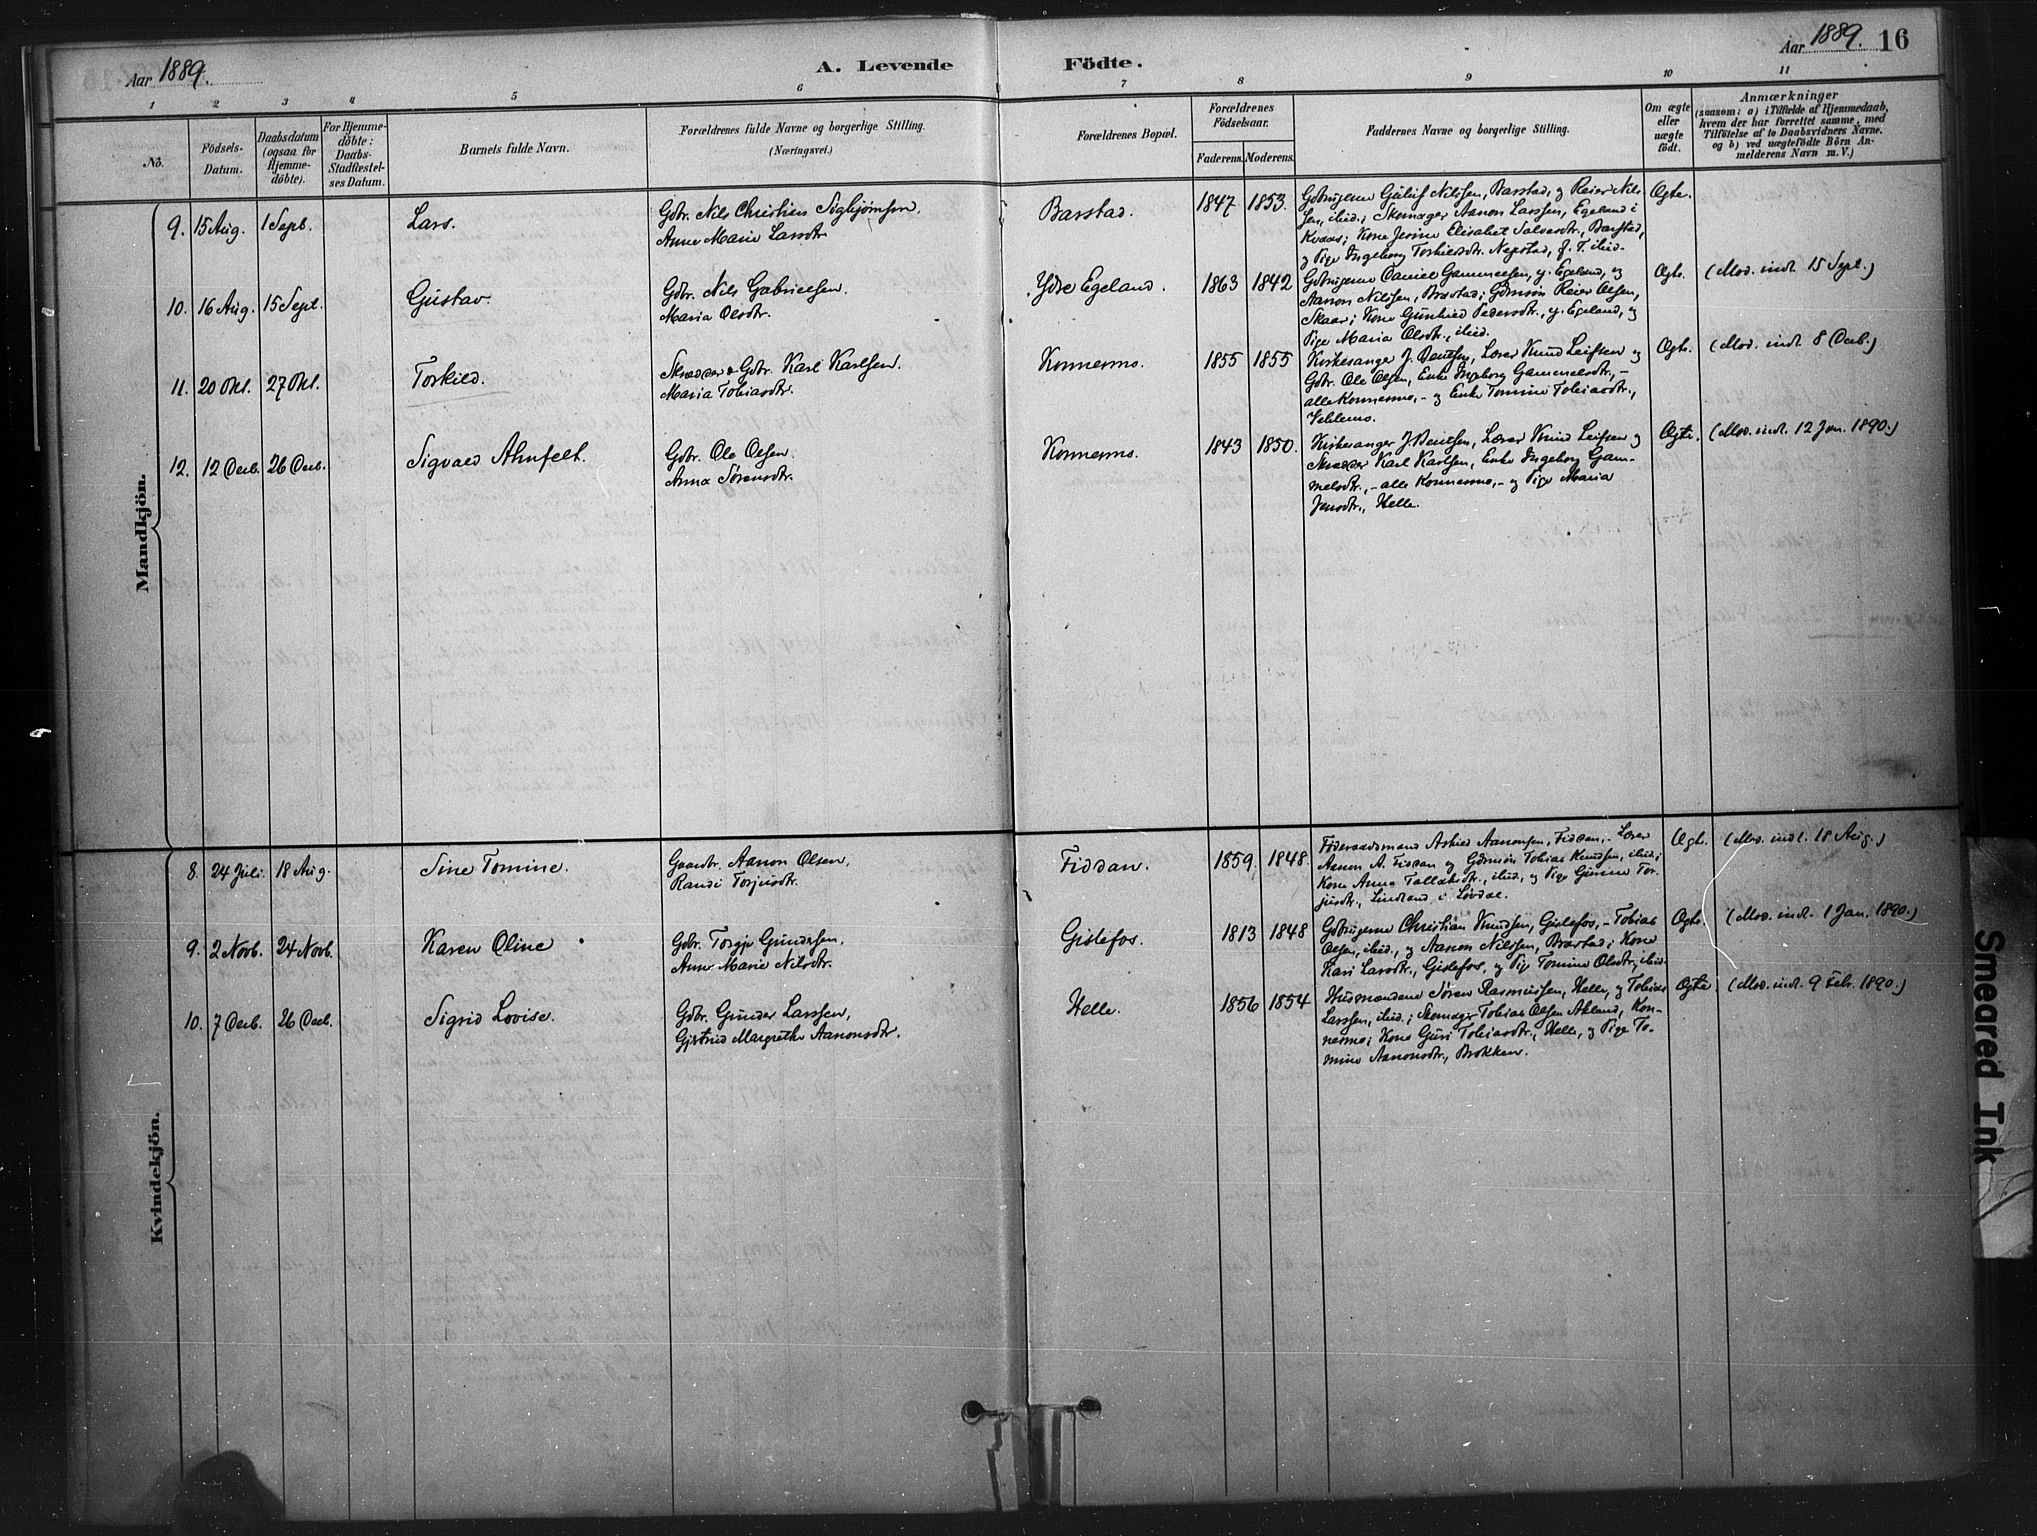 Aar 1889.
A. Levende Födte.
Aar 1889. 16
1 2 3 4 5 6 7 8 9 10 11
No.
Födsels-
Datum.
Daabsdatum
(ogsaa for
Hjemme-
döbte).
For Hjemme-
döbte:
Daabs-
Stadfæstel-
ses Datum.
Barnets fulde Navn.
Forældrenes fulde Navne og borgerlige Stilling.
(Næringsvei.)
Forældrenes Bopæl.
Forældrenes
Födselsaar.
Faderens. Moderens.
Faddernes Navne og borgerlige Stilling.
Om ægte
eller
uægte
födt.
Anmærkninger
(saasom: a) i Tilfælde af Hjemmedaab,
hvem der har forrettet samme, med
Tilföielse af to Daabsvidners Navne.
og b) ved uægtefödte Börn An-
melderens Navn m. V.)
Mandkjön.
9. 15 Aug. 1 Sept. Lars.
Gdbr. Nils Christian Sigbjørnsen.
Anne Marie Larsdtr.
Barstad. 1847 1853.
Gdbrugerne Guluf Nilssen, Barstad, og Reier Nils-
sen, ibid.; Skomager Aanon Larssen, Egeland i
Kvaas; Kone Jesine Elisabet Salvesdtr., Barstad,
og Pige Ingeborg Torkildsdtr. Nepstad, f. T. ibid.
Ægte.
10. 16 Aug. 15 Sept. Gustav.
Gdbr. Nils Gabrielsen.
Maria Olsdtr.
Ydre Egeland. 1863 1842
Gdbrugerne Daniel Gammelsen, y. Egeland, og
Aanon Nilssen, Brastad; Gdmsøn Reier Olsen,
Skaar; Kone Gunhild Pedersdtr., y. Egeland, og
Pige Maria Olsdtr., ibid.
Ægte. (Mod. indl. 15 Sept.)
11. 20 Okt. 27 Okt. Torkild.
Skrædder & Gdbr. Karl Karlsen.
Maria Tobiasdtr.
Konnesmo. 1855 1855
Kirkesanger J. Bentsen, Lærer Knud Leifsen og
Gdbr. Ole Olsen, Enke Ingeborg Gammelsdtr., -
alle Konnesmo, - og Enke Tomine Tobiasdtr.,
Vehlemo.
Ægte. (Mod. indl. 8 Decb.)
12. 12 Decb. 26 Decb. Sigvald Ahnfelt.
Gdbr. Ole Olsen.
Anna Sörensdtr.
Konnesmo. 1843 1850.
Kirkesanger J. Bentsen, Lærer Knud Leifsen og
Skrædder Karl Karlsen, Enke Ingeborg Gam-
melsdtr., - alle Konnesmo, - og Pige Maria
Jensdtr., Helle.
Ægte. (Mod. indl. 12 Jan. 1890.)
Kvindekjön.
8. 24 Juli. 18 Aug. Sine Tomine.
Gaardbr. Aanon Olsen,
Randi Torjusdtr.
Fiddan. 1859. 1848.
Føderaadsmand Askild Aanonsen, Fiddan, - Lærer
Aanon A. Fiddan og Gdmsøn Tobias Knudsen, ibid.;
Kone Anna Tallaksdtr., ibid., og Pige Gunne Tor-
jusdtr., Lindland i Løvdal.
Ægte. (Mod. indl. 18 Aug.)
9. 2 Novb. 24 Novb. Karen Oline
Gdbr. Torgje Gundersen,
Anne Marie Nilsdtr.
Gislefos. 1813 1848
Gdbrugerne Christian Knudsen, Gislefos, - Tobias
Olsen, ibid., og Aanon Nilssen, Brastad; Kone
Kari Larsdtr., Gislefos, og Pige Tomine Olsdtr., ibid.
Ægte. (Mod. indl. 1 Jan. 1890.)
10. 7 Decb. 26 Decb. Sigrid Lovise.
Gdbr. Gunder Larssen,
Gjertrud Margrethe Aanonsdtr.
Helle. 1856 1854
Husmændene Sören Rasmussen, Helle, og Tobias
Larssen, ibid.; Skomager Tobias Olsen Akland, Kon-
nesmo; Kone Guri Tobiasdtr., Helle, og Pige To-
mine Aanonsdtr., Brokken.
Ægte. (Mod. indl. 9 Febr. 1890.)
Smeared Ink